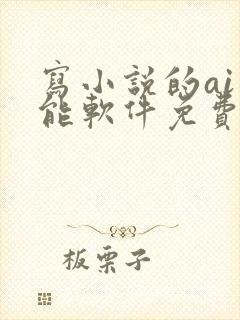 寫小說的ai
能軟件免費
板栗子